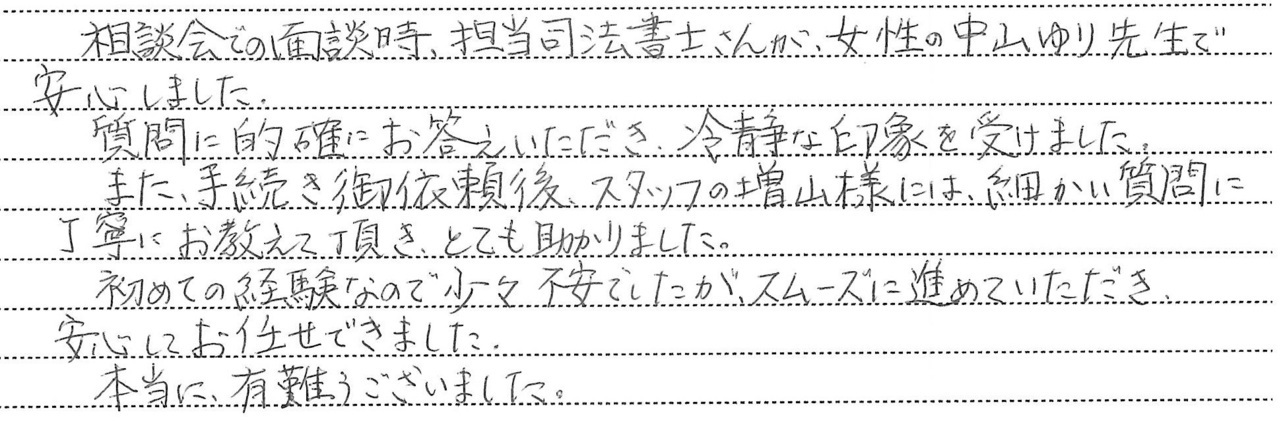 相談会での面談時、担当司法書士さんが、女性の中山ゆり先生で
安心しました。
質問に的確にお答えいただき、冷静な印象を受けました。
また、手続き御依頼後、スタッフの増山様には、細かい質問に
丁寧にお教えて頂き、とても助かりました。
初めての経験なので少々不安でしたが、スムーズに進めていただき、
安心してお任せできました。
本当に、有難うございました。